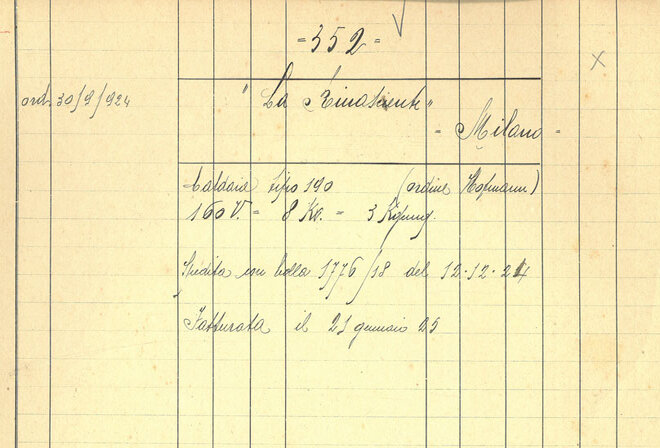 = 352 =
ord. 30/9/924
"La Rinascente"
= Milano =
Caldaia tipo 190 (ordine Hofmann)
160 V. = 8 Kw. = 3
Spedita con bolla 1776/18 del 12.12.24
Fatturata il 21 gennaio 25